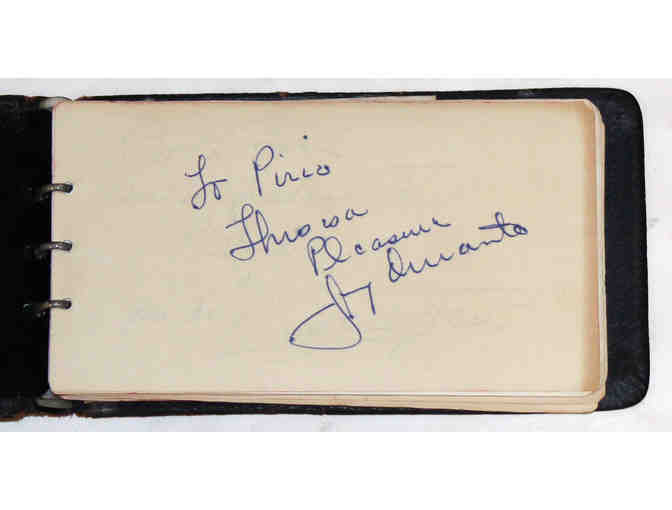 To Pirio
Pleasure
Jimmy Durante